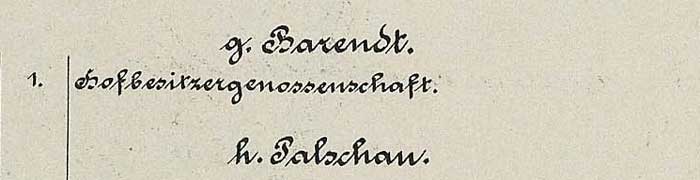 g. Barendt.
1. Hofbesitzergenossenschaft.
h. Palschau.